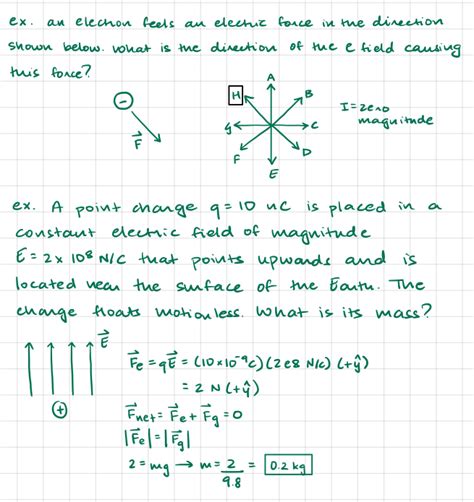 ex. an electron feels an electric force in the direction
shown below. what is the direction of the e field causing
this force?
A
H
B
I = zero
magnitude
G
C
F
D
E
F⃗
ex. A point charge q = 10 nC is placed in a
constant electric field of magnitude
E = 2 × 10⁸ N/C that points upwards and is
located near the surface of the Earth. The
charge floats motionless. What is its mass?
E⃗
F⃗e = qE⃗ = (10 × 10⁻⁹C)(2e8 N/C)(+ŷ)
= 2 N (+ŷ)
F⃗net = F⃗e + F⃗g = 0
|F⃗e| = |F⃗g|
2 = mg → m = 2/9.8 = 0.2 kg